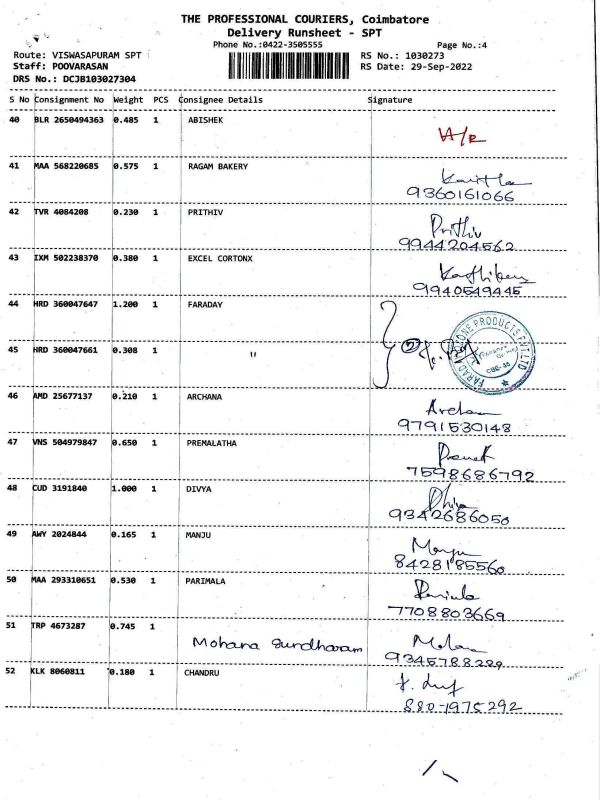 THE PROFESSIONAL COURIERS, Coimbatore
Delivery Runsheet - SPT
Phone No.:0422-3505555 Page No.:4
Route: VISWASAPURAM SPT RS No.: 1030273
Staff: POOVARASAN RS Date: 29-Sep-2022
DRS No.: DCJB103027304
S No Consignment No Weight PCS Consignee Details Signature
40 BLR 2650494363 0.485 1 ABISHEK
41 MAA 568220685 0.575 1 RAGAM BAKERY
9360161066
42 TVR 4084208 0.230 1 PRITHIV Prithiv
9944204562
43 IXM 502238370 0.380 1 EXCEL CORTONX
9940549445
44 HRD 360047647 1.200 1 FARADAY
45 HRD 360047661 0.308 1 "
46 AMD 25677137 0.210 1 ARCHANA
9791530148
47 VNS 504979847 0.650 1 PREMALATHA
7598686792
48 CUD 3191840 1.000 1 DIVYA
9342686050
49 AWY 2024844 0.165 1 MANJU
8428185560
50 MAA 293310651 0.530 1 PARIMALA
7708803669
51 TRP 4673287 0.745 1 Mohana Sundharam
9345788299
52 KLK 8060811 0.180 1 CHANDRU
880-1975292